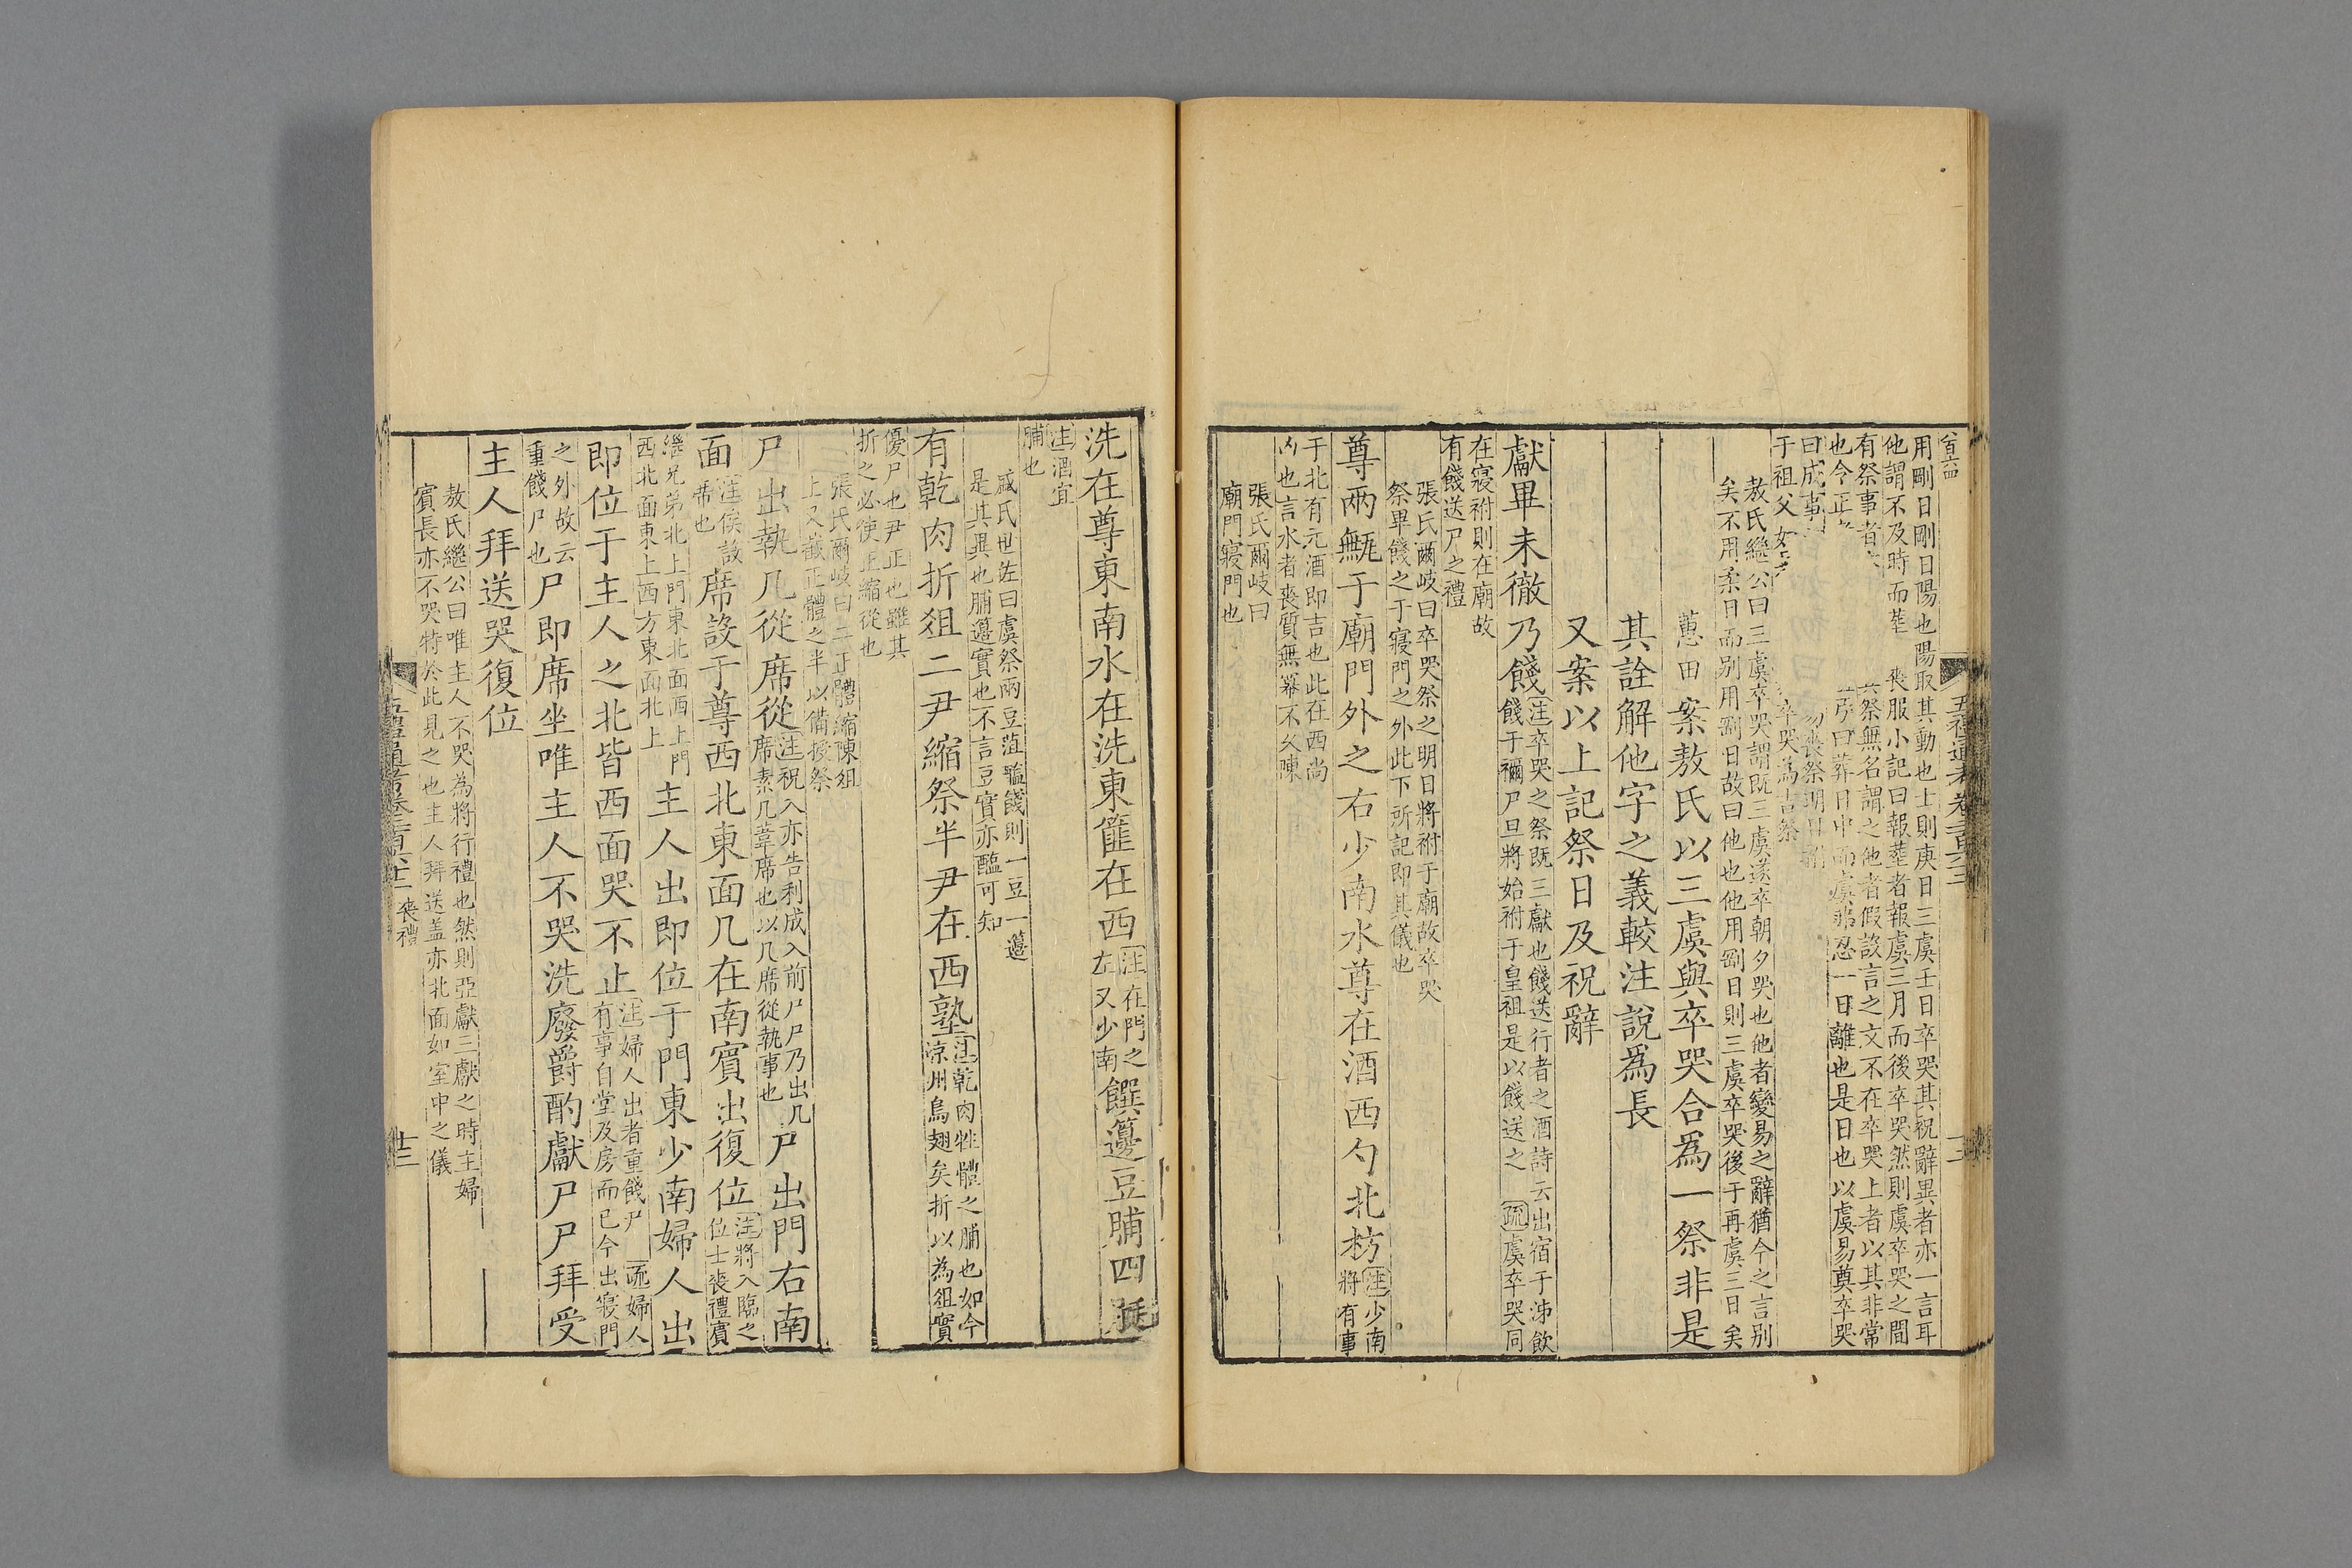 用剛日剛日陽也陽取其動也士則庚日三虞壬日卒哭其祝辭異者亦一言耳
他謂不及時而葬 喪服小記曰報葬者報虞三月而後卒哭然則虞卒哭之間
有祭事者 祭無名謂之他者假設言之文不在卒哭上者以其非常
也令正 曰葬日中而虞弗忍一日離也是日也以虞易奠卒哭
曰成事 喪祭明日祔
于祖父 卒哭為吉祭
敖氏繼公曰三虞卒哭謂既三虞遂卒朝夕哭也他者變易之辭猶今之言别
矣不用柔日而别用剛日故曰他也他用剛日則三虞卒哭後于再虞三日矣
蕙田案敖氏以三虞與卒哭合爲一祭非是
其詮解他字之義較注說爲長
又案以上記祭日及祝辭
獻畢未徹乃餞
注卒哭之祭既三獻也餞送行者之酒詩云出宿于泲飲
餞于禰尸旦將始祔于皇祖是以餞送之 疏虞卒哭同
在寢祔則在廟故
有餞送尸之禮
張氏爾岐曰卒哭祭之明日將祔于廟故卒哭
祭畢餞之于寢門之外此下所記即其儀也
尊兩甒于廟門外之右少南水尊在酒西勺北枋
注少南
將有事
于北有元酒即吉也此在西尚
凶也言水者喪質無冪不久陳
張氏爾岐曰
廟門寢門也
五禮通考卷
洗在尊東南水在洗東篚在西
注在門之
左又少南
饌籩豆脯四脡
注酒宜
脯也
盛氏世佐曰虞祭兩豆菹醢餞則一豆一籩
是其異也脯籩實也不言豆實亦醢可知
有乾肉折俎二尹縮祭半尹在西塾
注乾肉牲體之脯也如今
涼州烏翅矣折以為俎實
優尸也尹正也雖其
折之必使正縮從也
張氏爾岐曰二正體縮陳俎
上又截正體之半以備授祭
尸出執几從席從
注祝入亦告利成入前尸尸乃出几
席素几葦席也以几席從執事也
尸出門右南
面
注俟設
席也
席設于尊西北東面几在南賓出復位
注將入臨之
位士喪禮賓
繼兄弟北上門東北面西上門
西北面東上西方東面北上
主人出即位于門東少南婦人出
即位于主人之北皆西面哭不止
注婦人出者重餞尸 疏婦人
有事自堂及房而已今出寢門
之外故云
重餞尸也
尸即席坐唯主人不哭洗廢爵酌獻尸尸拜受
主人拜送哭復位
敖氏繼公曰唯主人不哭為將行禮也然則亞獻三獻之時主婦
賓長亦不哭特於此見之也主人拜送盖亦北面如室中之儀
喪禮